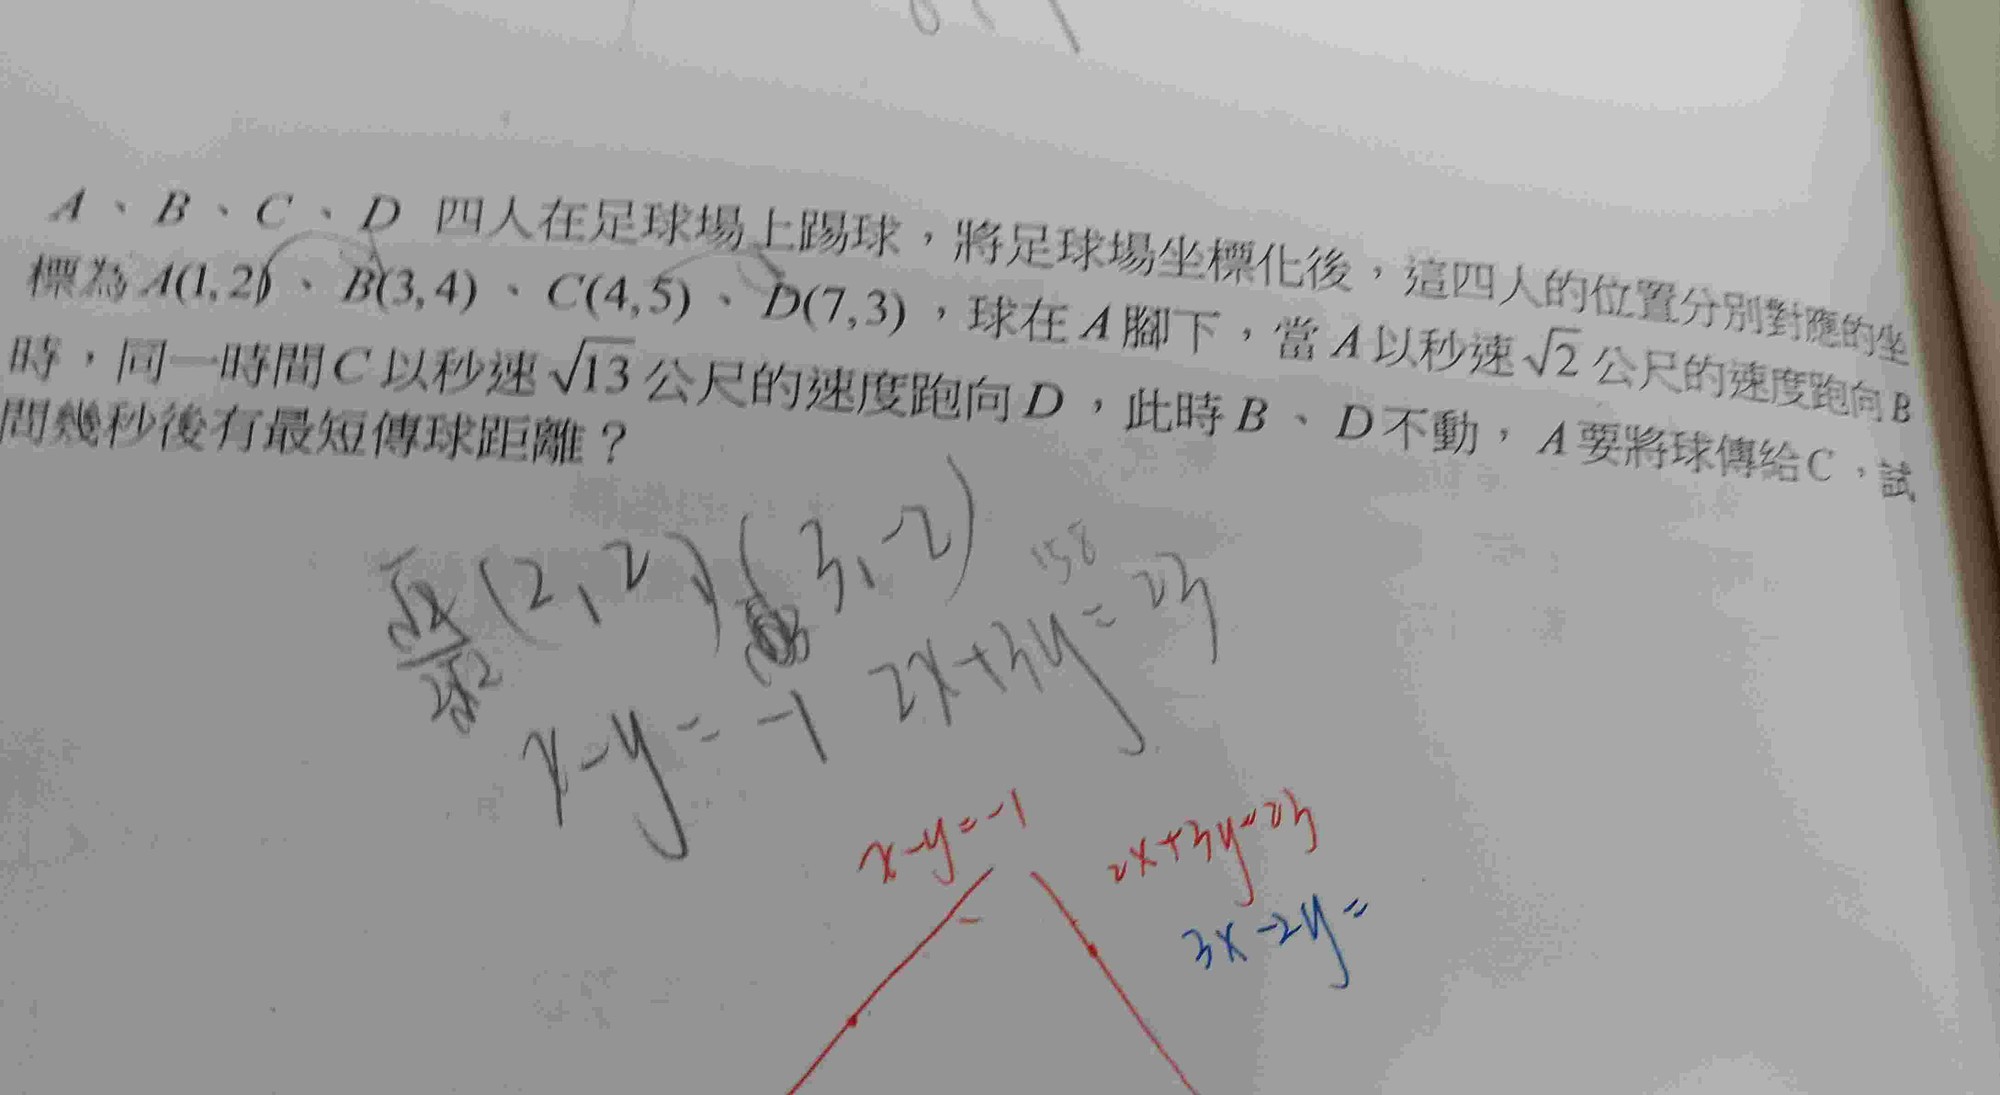 A、B、C、D 四人在足球場上踢球，將足球場坐標化後，這四人的位置分別對應的坐
標為A(1,2)、B(3,4)、C(4,5)、D(7,3)，球在A腳下，當A以秒速√2公尺的速度跑向B
時，同一時間C以秒速√13公尺的速度跑向D，此時B、D不動，A要將球傳給C，試
問幾秒後有最短傳球距離？
(2,2) (3,-2)
158
x-y=-1 2x+3y=23
x-y=-1 2x+3y=23
3x-2y=